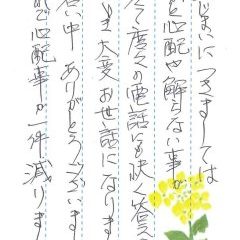 じまいにつきましては
心配や解らない事が
度々の電話にも快く答え
大変お世話になりま
中ありがとうございます
で心配事が一件減りま